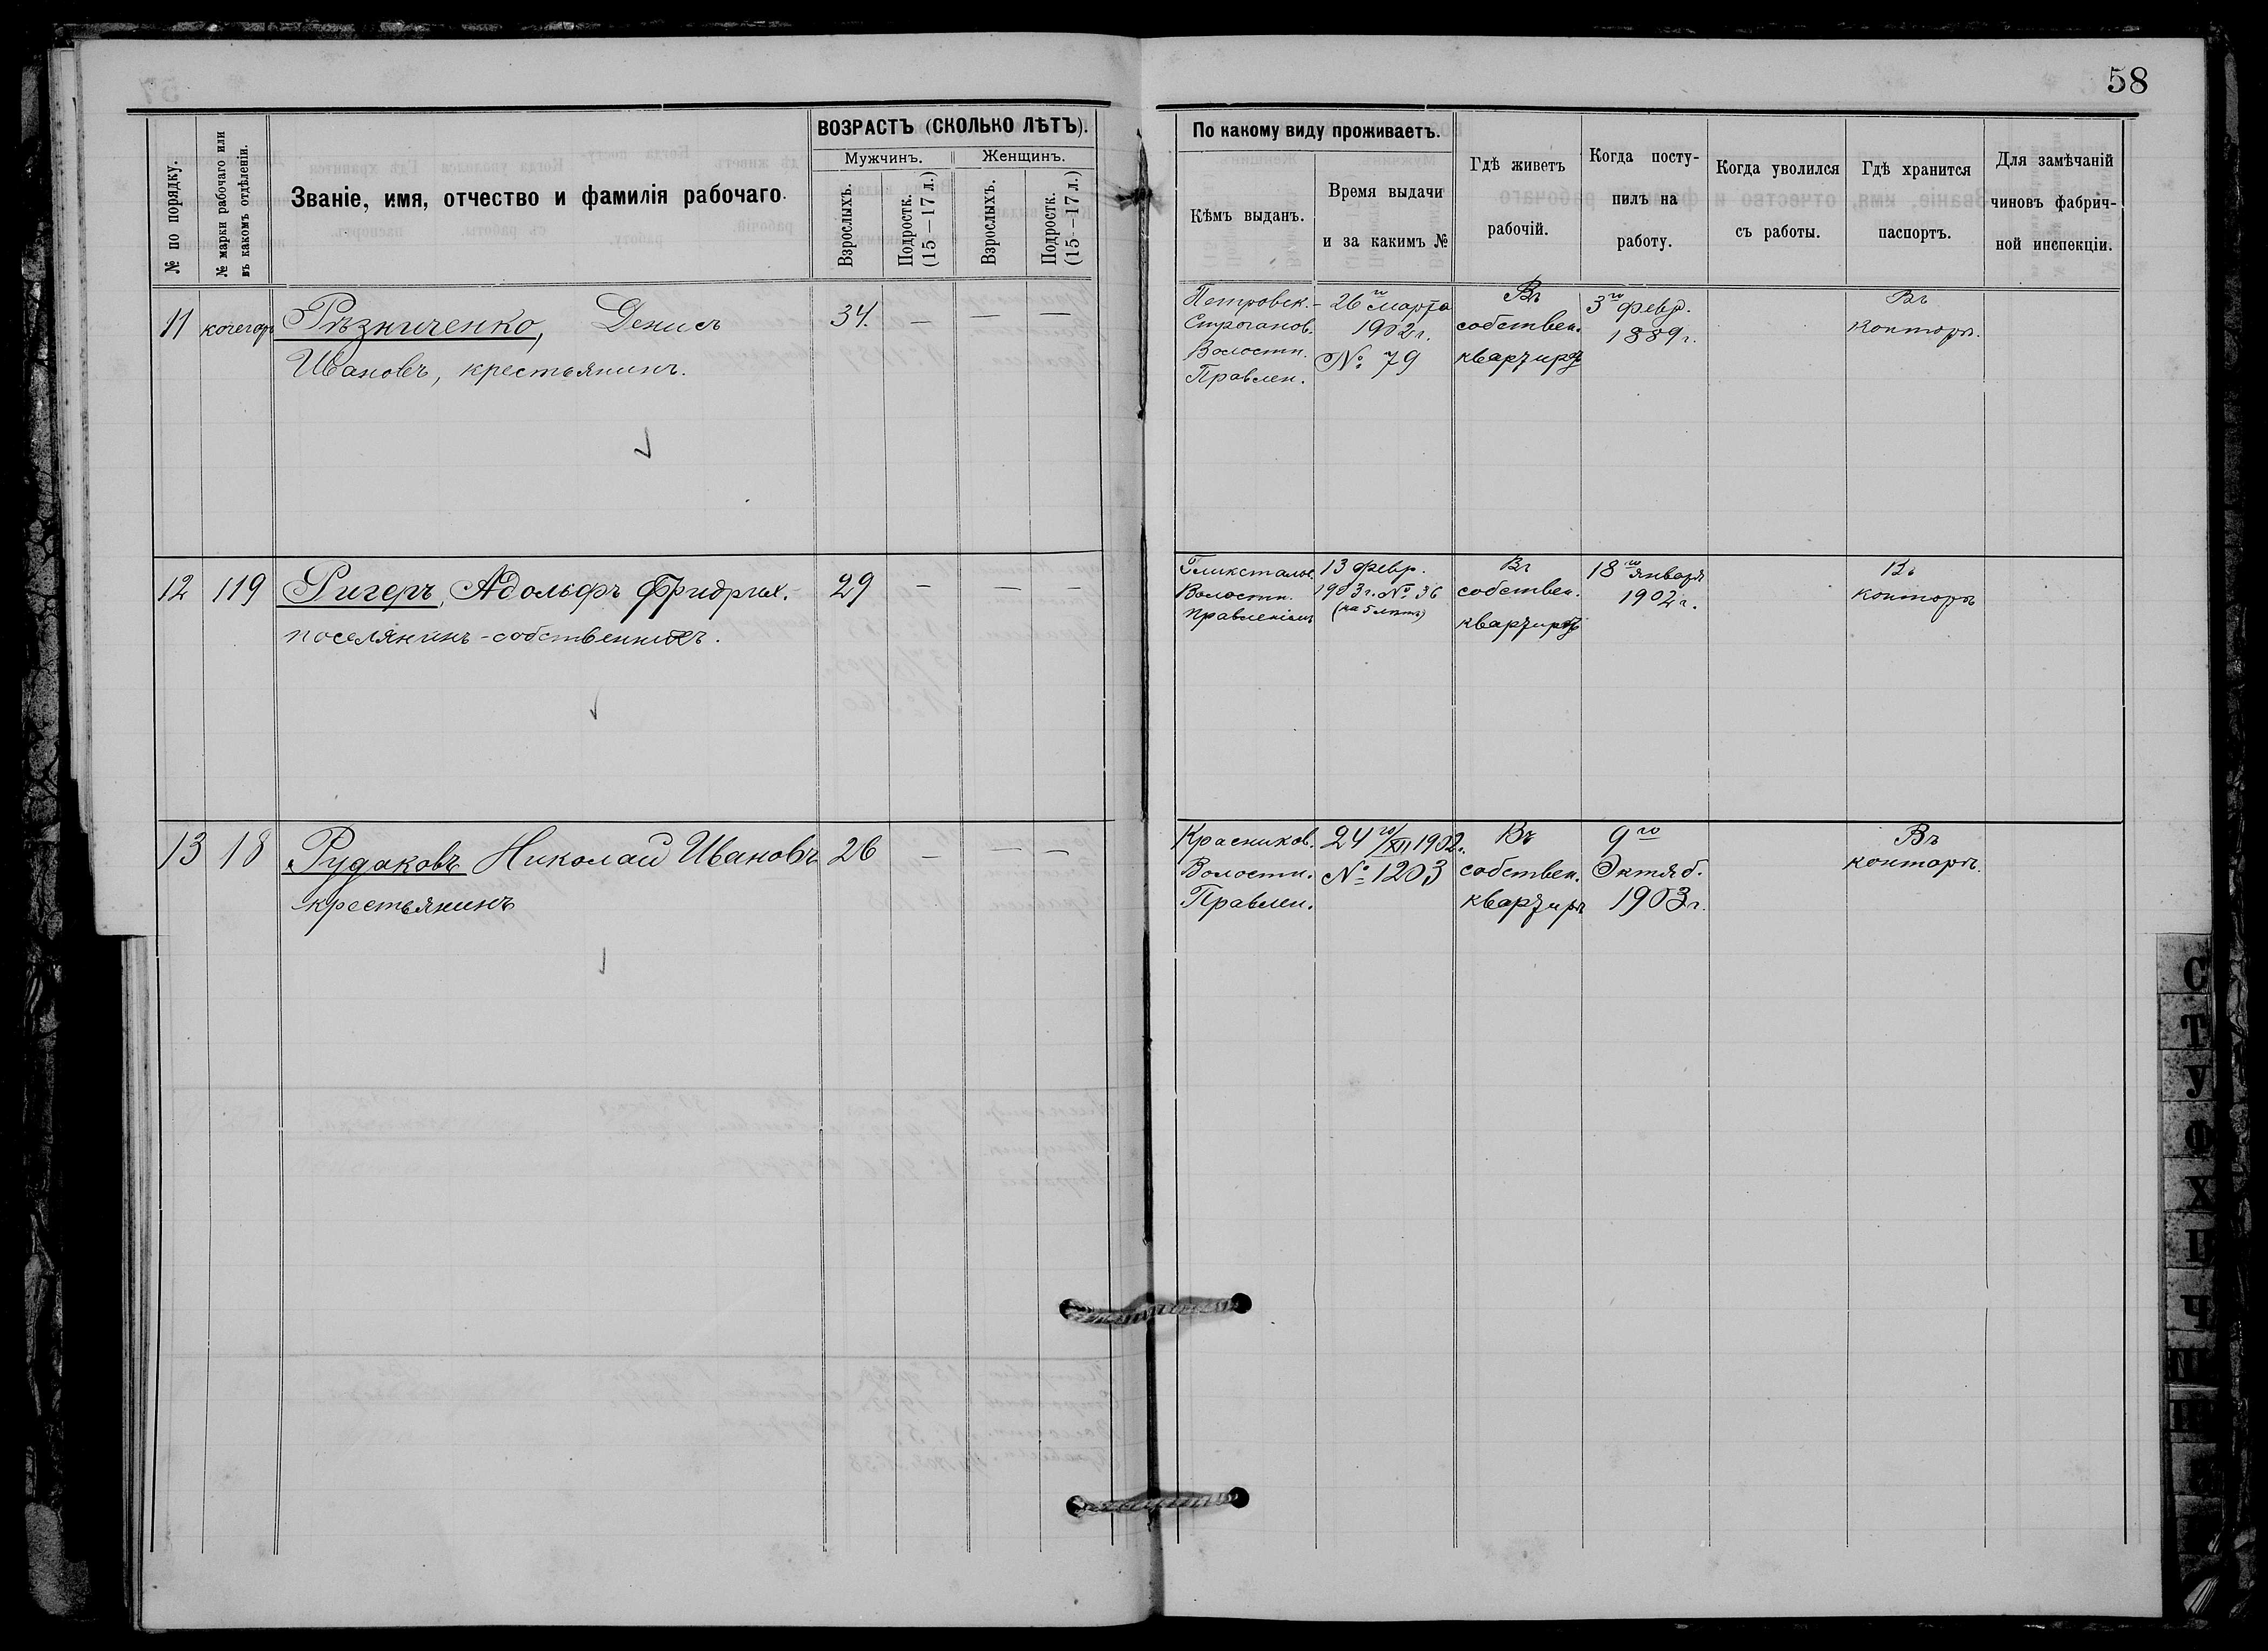 58
ВОЗРАСТЪ (СКОЛЬКО ЛѢТЪ).
Мужчинъ. Женщинъ.
№ по порядку.
№ марки рабочаго или
въ какомъ отдѣленіи.
Званіе, имя, отчество и фамилія рабочаго.
Взрослыхъ.
Подростк.
(15—17 л.)
Взрослыхъ.
Подростк.
(15—17 л.)
По какому виду проживаетъ.
Кѣмъ выданъ.
Время выдачи
и за какимъ №
Гдѣ живетъ
рабочій.
Когда посту-
пилъ на
работу.
Когда уволился
съ работы.
Гдѣ хранится
паспортъ.
Для замѣчаній
чиновъ фабрич-
ной инспекціи.
11 кочегаръ Рѣзниченко, Денисъ 34. — — —
Ивановъ, крестьянинъ.
Петровск.-
Строганов.
Волостн.
Правлен.
26го марта
1902 г.
№ 79
Въ
собствен.
квартирѣ
3го февр.
1889 г.
Въ
конторѣ.
12 119 Ригеръ, Адольфъ Фридрих. 29 — — —
поселянинъ-собственникъ.
Гликсталь.
Волостн.
правленіемъ
13 февр.
1903 г. № 36
(на 5 лѣтъ)
Въ
собствен.
квартирѣ
18го января
1902 г.
Въ
конторѣ
13 18 Рудаковъ Николай Ивановъ 26 — — —
крестьянинъ
Красников.
Волостн.
Правлен.
24го/XII 1902 г.
№ 1203
Въ
собствен.
квартирѣ
9го
Октяб.
1903 г.
Въ
конторѣ.
С
Т
У
Ф
Х
Ц
Ч
Ш